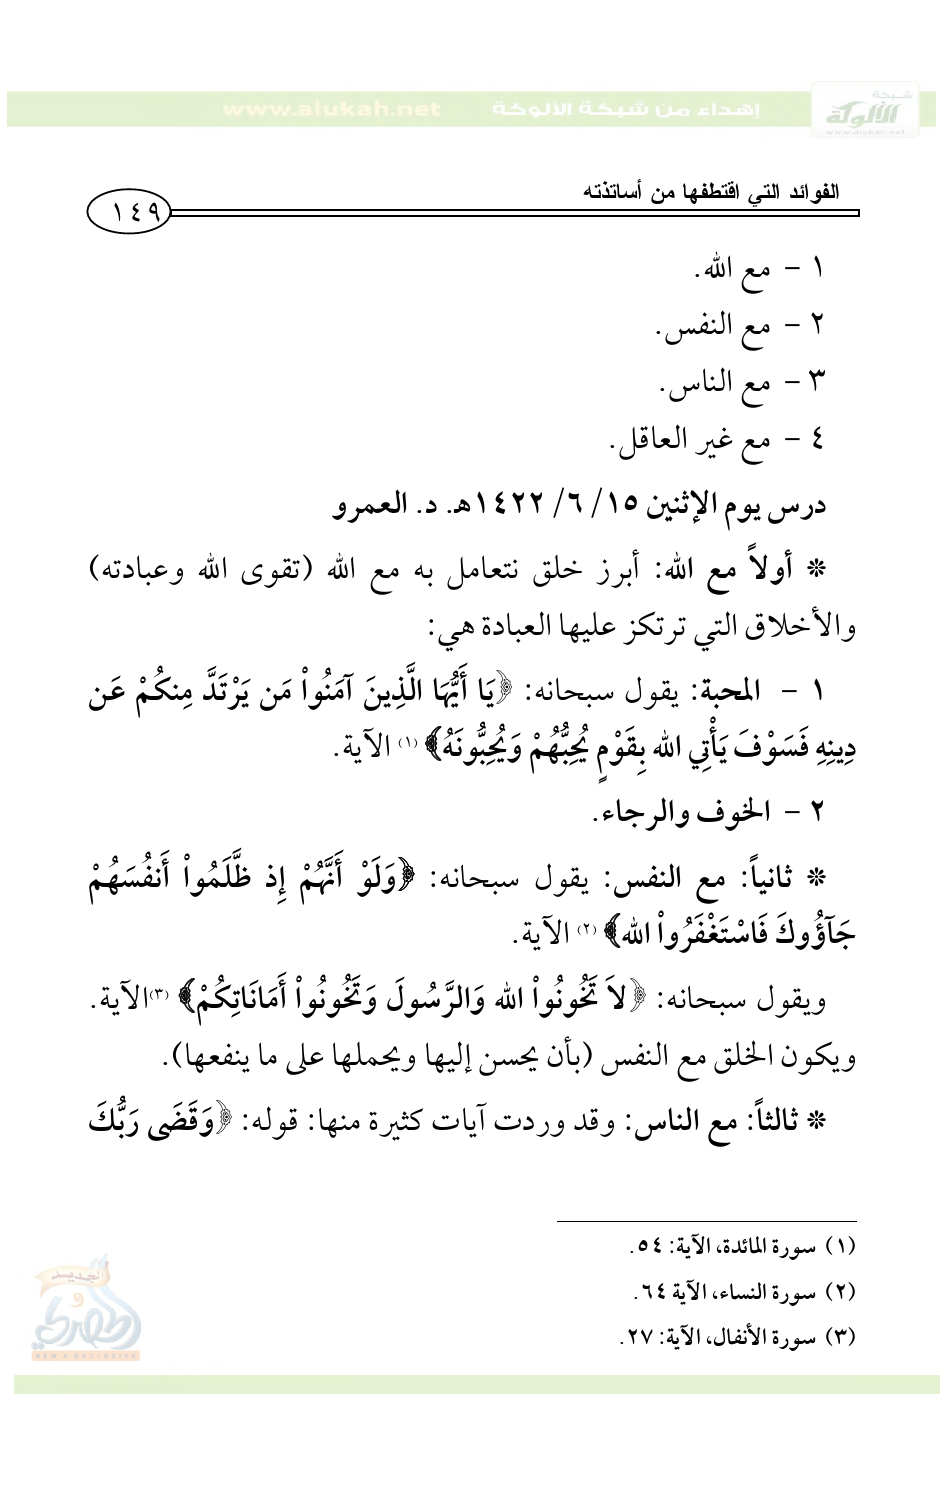 www.alukah.net إهداء من شبكة الألوكة شبكة الألوكة www.alukah.net
الفوائد التي اقتطفها من أساتذته
١٤٩
١ – مع الله.
٢ – مع النفس.
٣ – مع الناس.
٤ – مع غير العاقل.
درس يوم الإثنين ١٥/ ٦/ ١٤٢٢هـ. د. العمرو
❊ أولاً مع الله: أبرز خلق نتعامل به مع الله (تقوى الله وعبادته)
والأخلاق التي ترتكز عليها العبادة هي:
١ – المحبة: يقول سبحانه: ﴿يَا أَيُّهَا الَّذِينَ آمَنُواْ مَن يَرْتَدَّ مِنكُمْ عَن
دِينِهِ فَسَوْفَ يَأْتِي الله بِقَوْمٍ يُحِبُّهُمْ وَيُحِبُّونَهُ﴾ (١) الآية.
٢ – الخوف والرجاء.
❊ ثانياً: مع النفس: يقول سبحانه: ﴿وَلَوْ أَنَّهُمْ إِذ ظَّلَمُواْ أَنفُسَهُمْ
جَآؤُوكَ فَاسْتَغْفَرُواْ الله﴾ (٢) الآية.
ويقول سبحانه: ﴿لاَ تَخُونُواْ الله وَالرَّسُولَ وَتَخُونُواْ أَمَانَاتِكُمْ﴾ (٣)الآية.
ويكون الخلق مع النفس (بأن يحسن إليها ويحملها على ما ينفعها).
❊ ثالثاً: مع الناس: وقد وردت آيات كثيرة منها: قوله: ﴿وَقَضَى رَبُّكَ
(١) سورة المائدة، الآية: ٥٤.
(٢) سورة النساء، الآية ٦٤.
(٣) سورة الأنفال، الآية: ٢٧.
الجديد
و
NEW & EXCLUSIVE